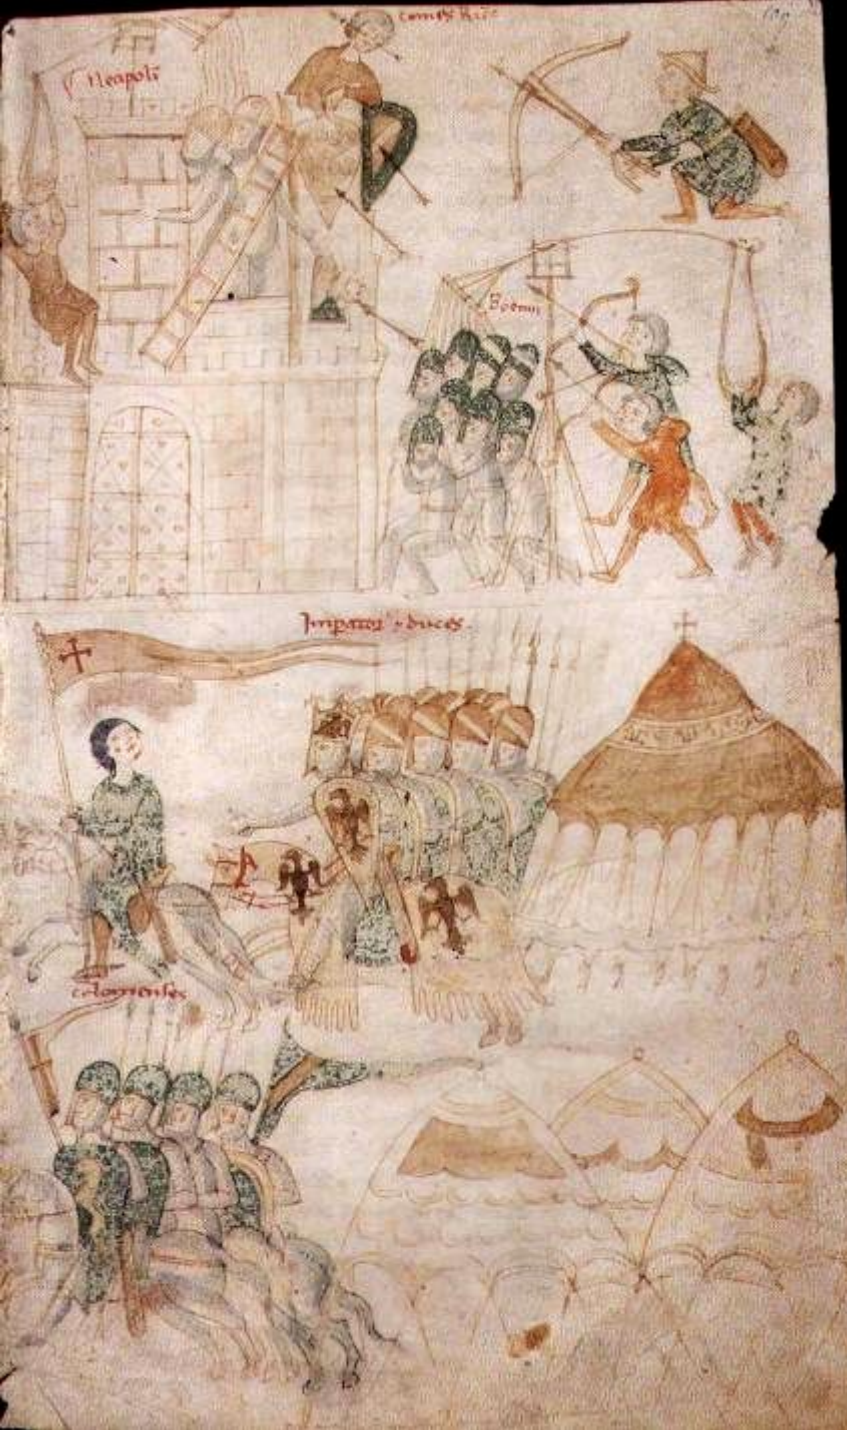 comes Ric
109
Neapolis
Boemii
Imperator & duces.
colonienses